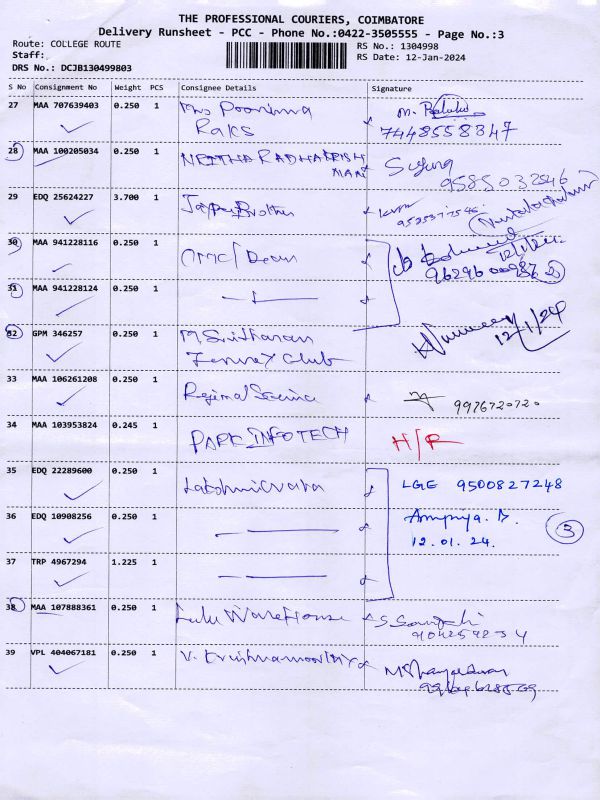 THE PROFESSIONAL COURIERS, COIMBATORE
Delivery Runsheet - PCC - Phone No.:0422-3505555 - Page No.:3
Route: COLLEGE ROUTE
RS No.: 1304998
Staff:
RS Date: 12-Jan-2024
DRS No.: DCJB130499803
S No Consignment No Weight PCS Consignee Details Signature
27 MAA 707639403 0.250 1 Mrs Poornima
Raks
7448558347
28 MAA 100205034 0.250 1 NEITHA RADHAKRISH
NAN
9585032846
29 EDQ 25624227 3.700 1 Brother
30 MAA 941228116 0.250 1 Dean
12/1/24
31 MAA 941228124 0.250 1
32 GPM 346257 0.250 1
Club
12/1/24
33 MAA 106261208 0.250 1 Regional Science
9976720720
34 MAA 103953824 0.245 1 PARK INFOTECH H/R
35 EDQ 22289600 0.250 1 LGE 9500827248
36 EDQ 10908256 0.250 1
3
12.01.24.
37 TRP 4967294 1.225 1
38 MAA 107888361 0.250 1 Lulu WareHouse
39 VPL 404067181 0.250 1 V. Krishnamoorthy